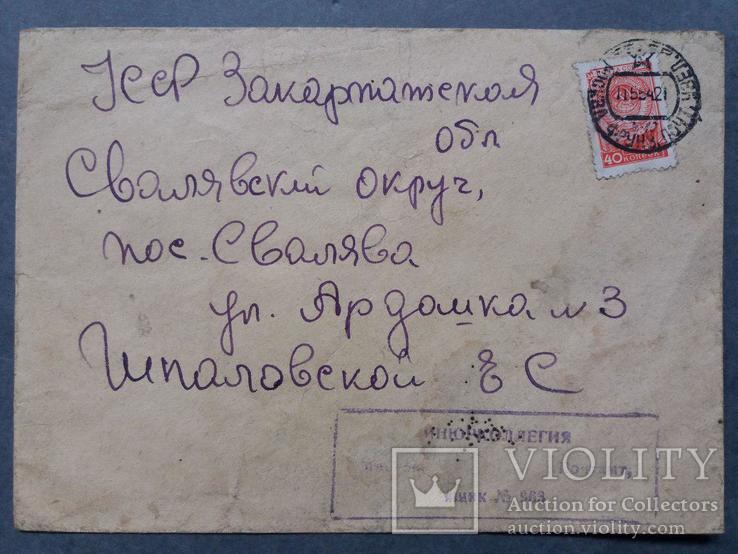 УССР Закарпатской
обл
Свалявский округ,
пос. Свалява
ул. Ардашка № 3
Шпаловской Е С
40
КОПЕЕК
ИНЮРКОЛЛЕГИЯ
ящик №
VIOLITY
Auction for Collectors
auction.violity.com